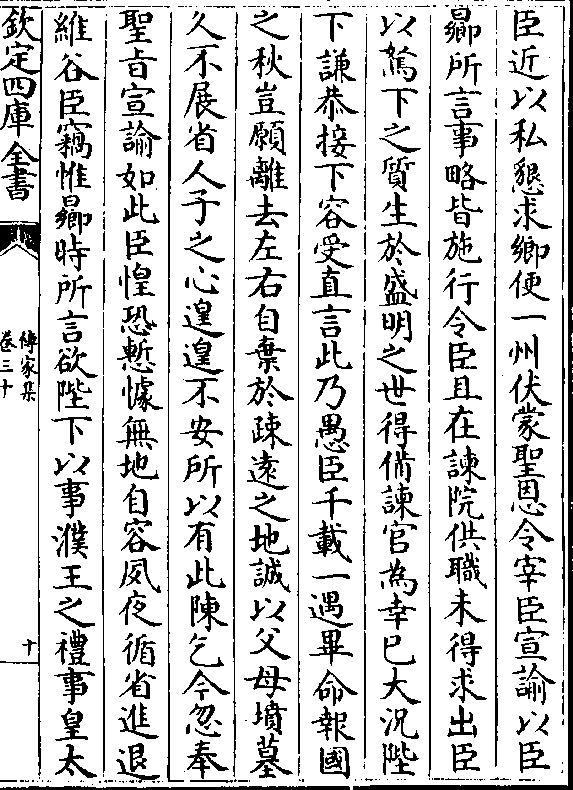 臣近以私懇求鄉便一州伏蒙聖恩令宰臣宣諭以臣
曏所言事略皆施行令臣且在諫院供職未得求出臣
以駑下之質生於盛明之世得備諫官為幸已大況陛
下謙恭接下容受直言此乃愚臣千載一遇畢命報國
之秋豈願離去左右自棄於疎遠之地誠以父母墳墓
久不展省人子之心遑遑不安所以有此陳乞今忽奉
聖旨宣諭如此臣惶恐慙懅無地自容夙夜循省進退
維谷臣竊惟曏時所言欲陛下以事濮王之禮事皇太
欽定四庫全書
傳家集
卷三十
十